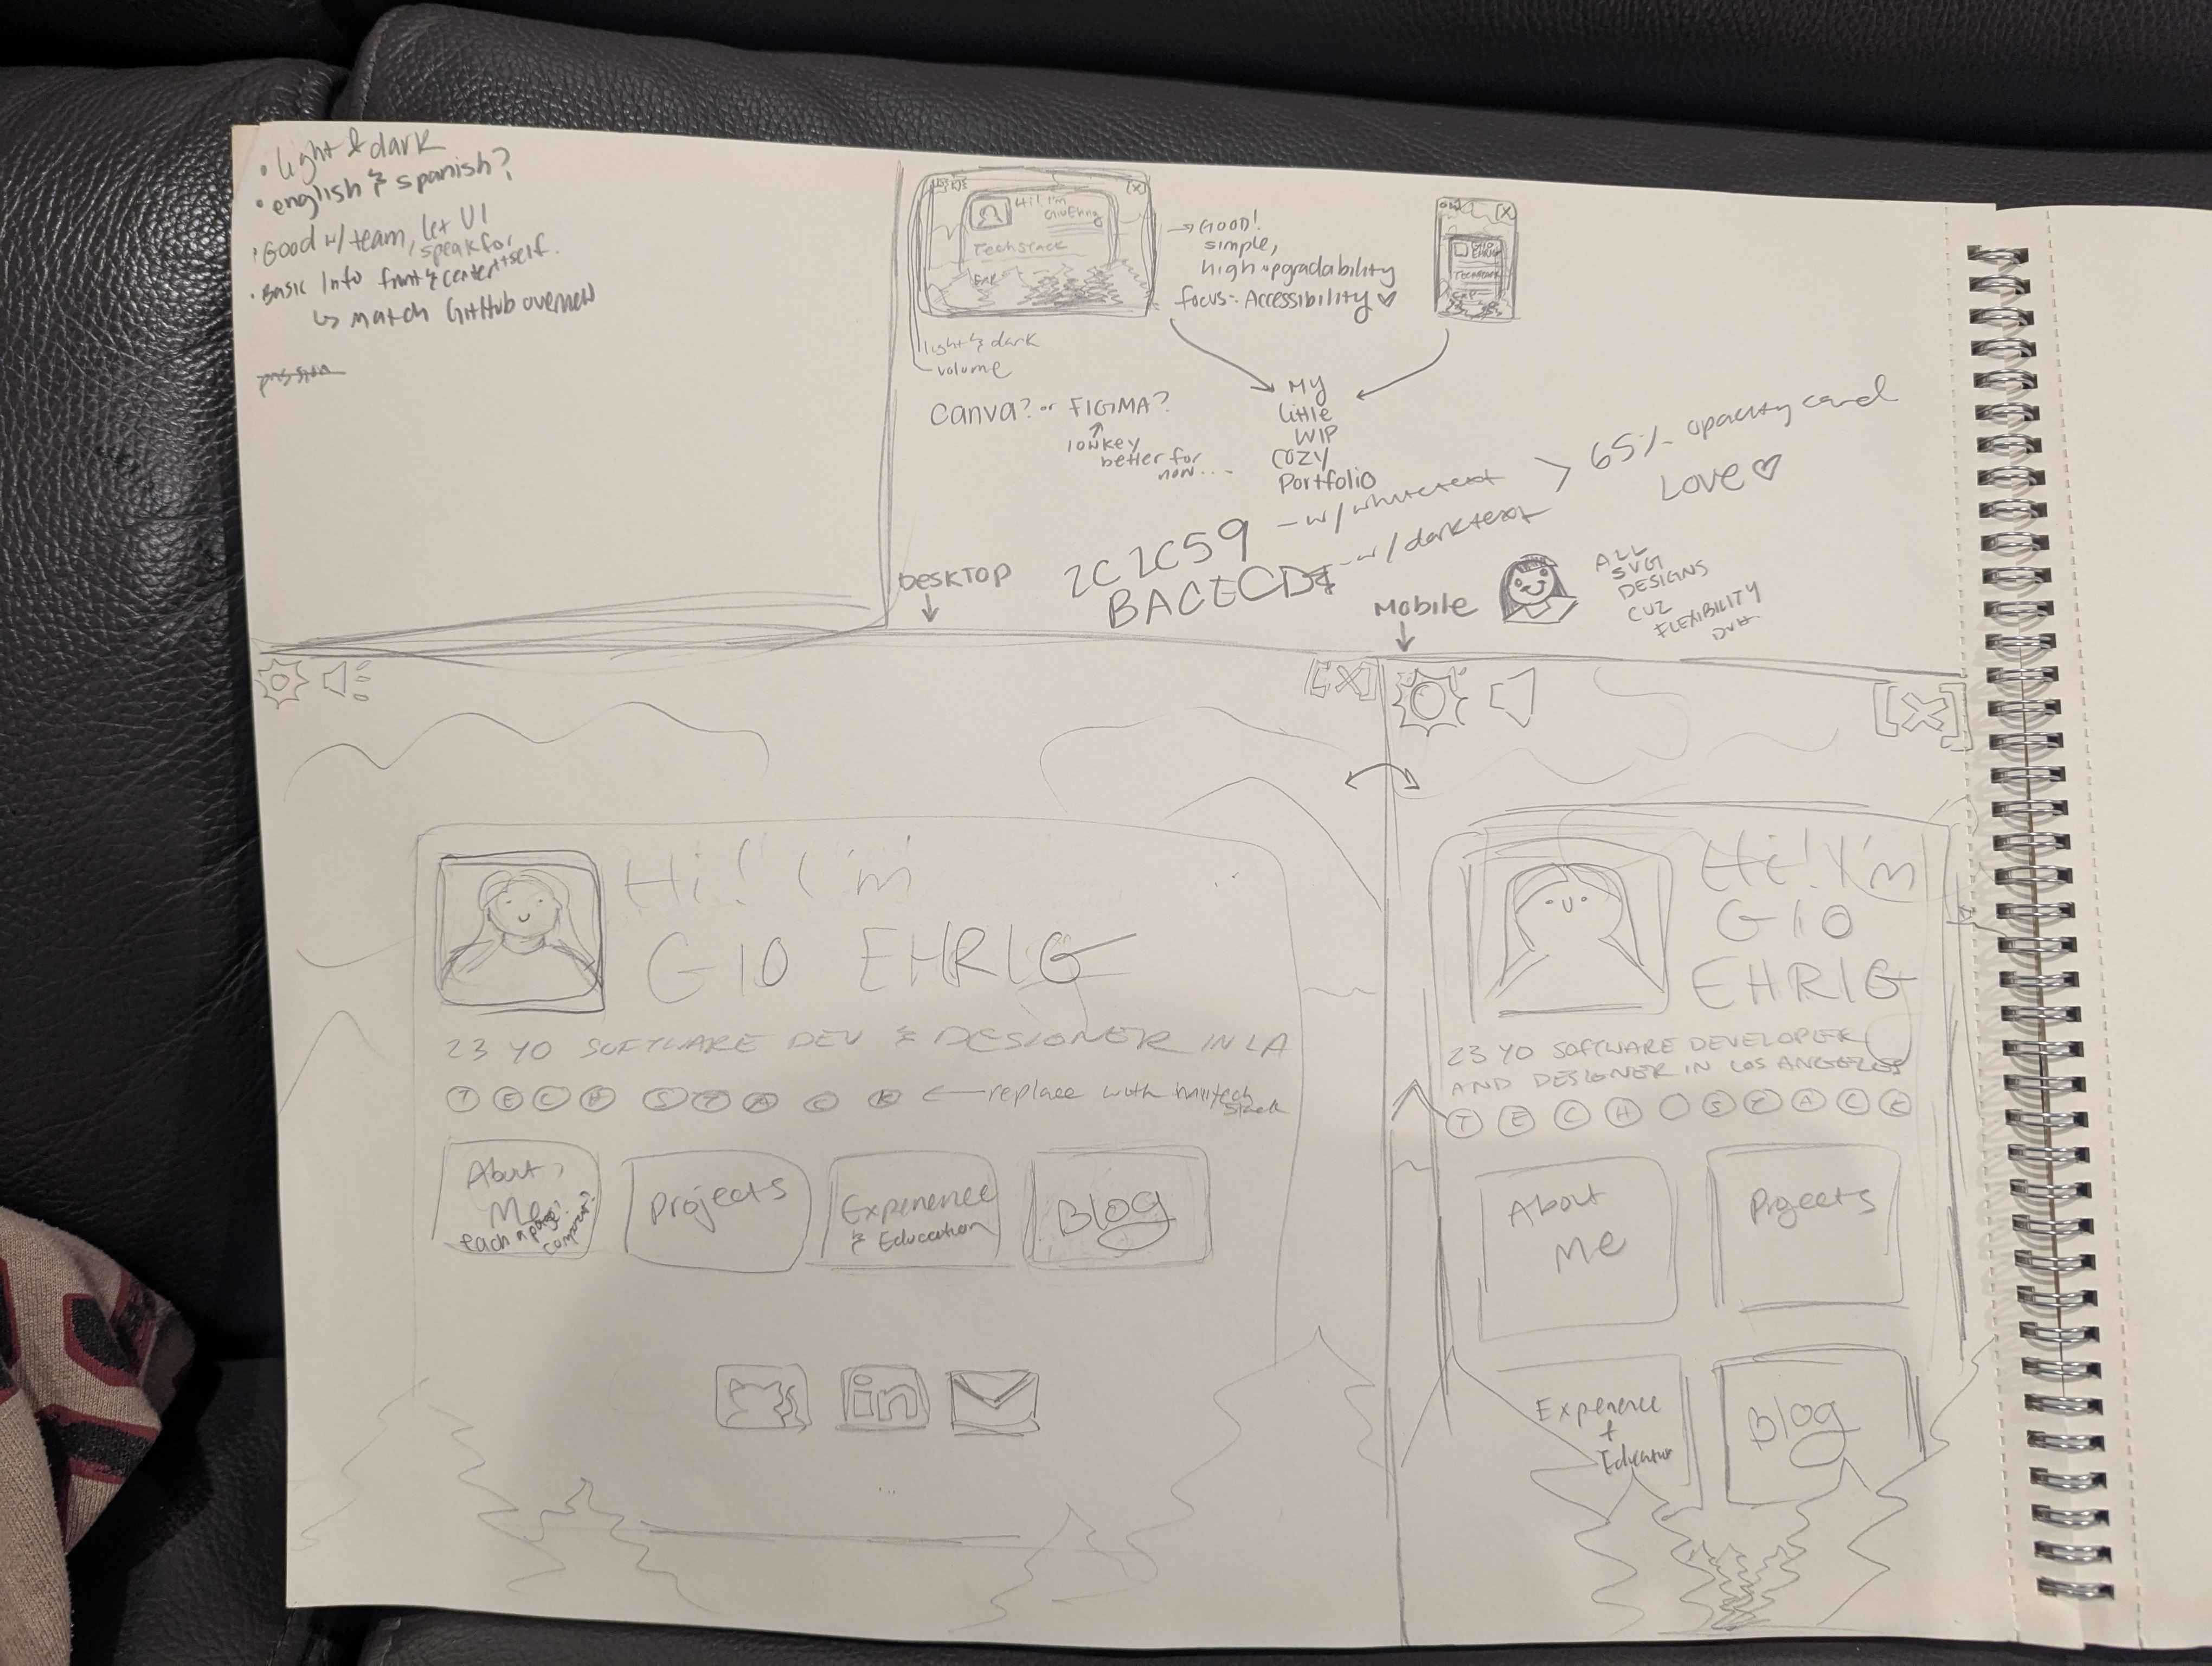 • light & dark
• english & spanish?
• Good w/ team, let UI
speak for
itself.
• Basic Info front & center
↳ match GitHub overview
Hi! I'm
Gio Ehrig
Techstack
→ GOOD!
simple,
high upgradability
focus: Accessibility ♡
[X]
GIO
EHRIG
TECHSTACK
light & dark
volume
Canva? or FIGMA?
↑
lowkey
better for
now...
My
little
WIP
COZY
Portfolio
2C2C59 - w/ white text
BACECD - w/ dark text
> 65% opacity card
LOVE ♡
ALL
SVG
DESIGNS
CUZ
FLEXIBILITY
DUH.
DESKTOP
↓
[X]
Hi! I'm
GIO EHRIG
23 YO SOFTWARE DEV & DESIGNER IN LA
T E C H S T A C K ← replace with my tech
stack
About
Me
each a page?
component?
Projects
Experience
& Education
Blog
in
Mobile
↓
[X]
Hi! I'm
GIO
EHRIG
23 YO SOFTWARE DEVELOPER
AND DESIGNER IN LOS ANGELES
T E C H S T A C K
About
Me
Projects
Experience
+
Education
Blog